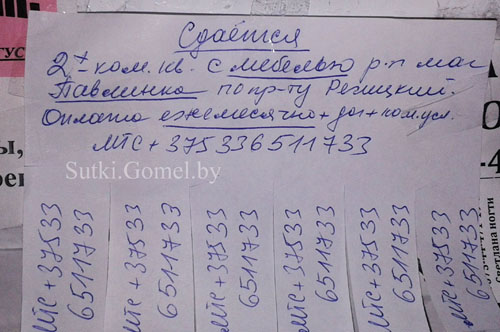 Сдаётся
2х ком. кв. с мебелью р-н маг
Павлинка по пр-ту Речицкий.
Оплата ежемесячно + дог + ком. усл.
МТС + 375336511733
Sutki.Gomel.by
МТС + 37533
6511733
МТС + 37533
6511733
МТС + 37533
6511733
МТС + 37533
6511733
МТС + 37533
6511733
МТС + 37533
6511733